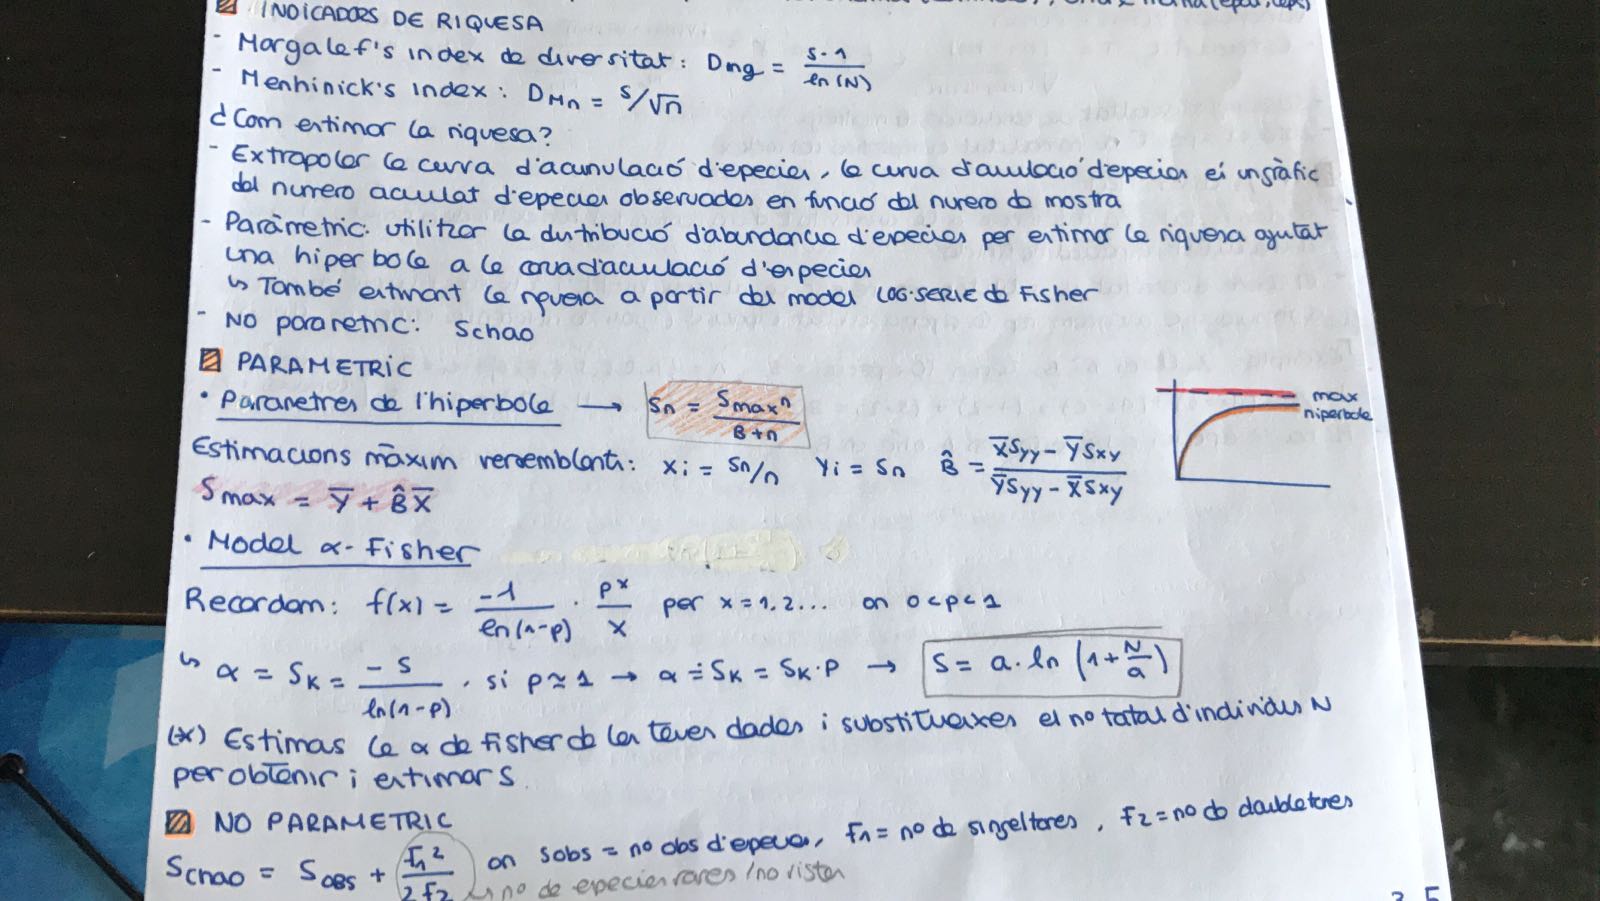 INDICADORS DE RIQUESA
- Margalef's index de diversitat: Dmg = s-1 / ln(N)
- Menhinick's index: DMn = s/√n
¿Com estimar la riquesa?
- Extrapolar la curva d'acumulació d'epecies, la curva d'aculació d'epecies és un gràfic
del numero aculat d'epecies observades en funció del numero de mostra
- Paràmetric: utilitzar la distribució d'abundancia d'especies per estimar la riquesa ajutat
una hiperbole a la corva d'aculació d'especies
↳ També estimant la riquesa a partir del model LOG-SERIE de Fisher
- NO parametric: Schao
PARAMETRIC
• Parametres de l'hiperbole → Sn = Smax n / B+n
max
hiperbole
Estimacions màxim versemblants: Xi = Sn/n Yi = Sn B̂ = X̅Syy - Y̅Sxy / Y̅Syy - X̅Sxy
Smax = Y̅ + B̂X̅
• Model α-Fisher
Recordam: f(x) = -1 / ln(1-p) · p^x / x per x=1,2... on 0<p<1
↳ α = SK = -S / ln(1-p) , si p≃1 → α ≐ SK = SK·p → S = a·ln (1+N/a)
(*) Estimas la α de Fisher de les teves dades i substitueixes el nº total d'individus N
per obtenir i estimar S.
NO PARAMETRIC
Schao = SOBS + F1² / 2F2 on Sobs = nº obs d'epecies, F1 = nº de singeltones, F2 = nº de doubletones
↳ nº de especies rares /no vistes